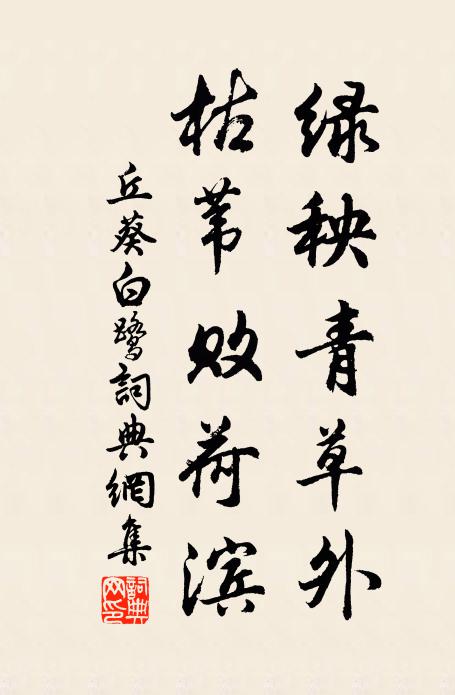 绿秧青草外
枯苇败荷滨
丘葵白鹭詞典網集
詞典网印